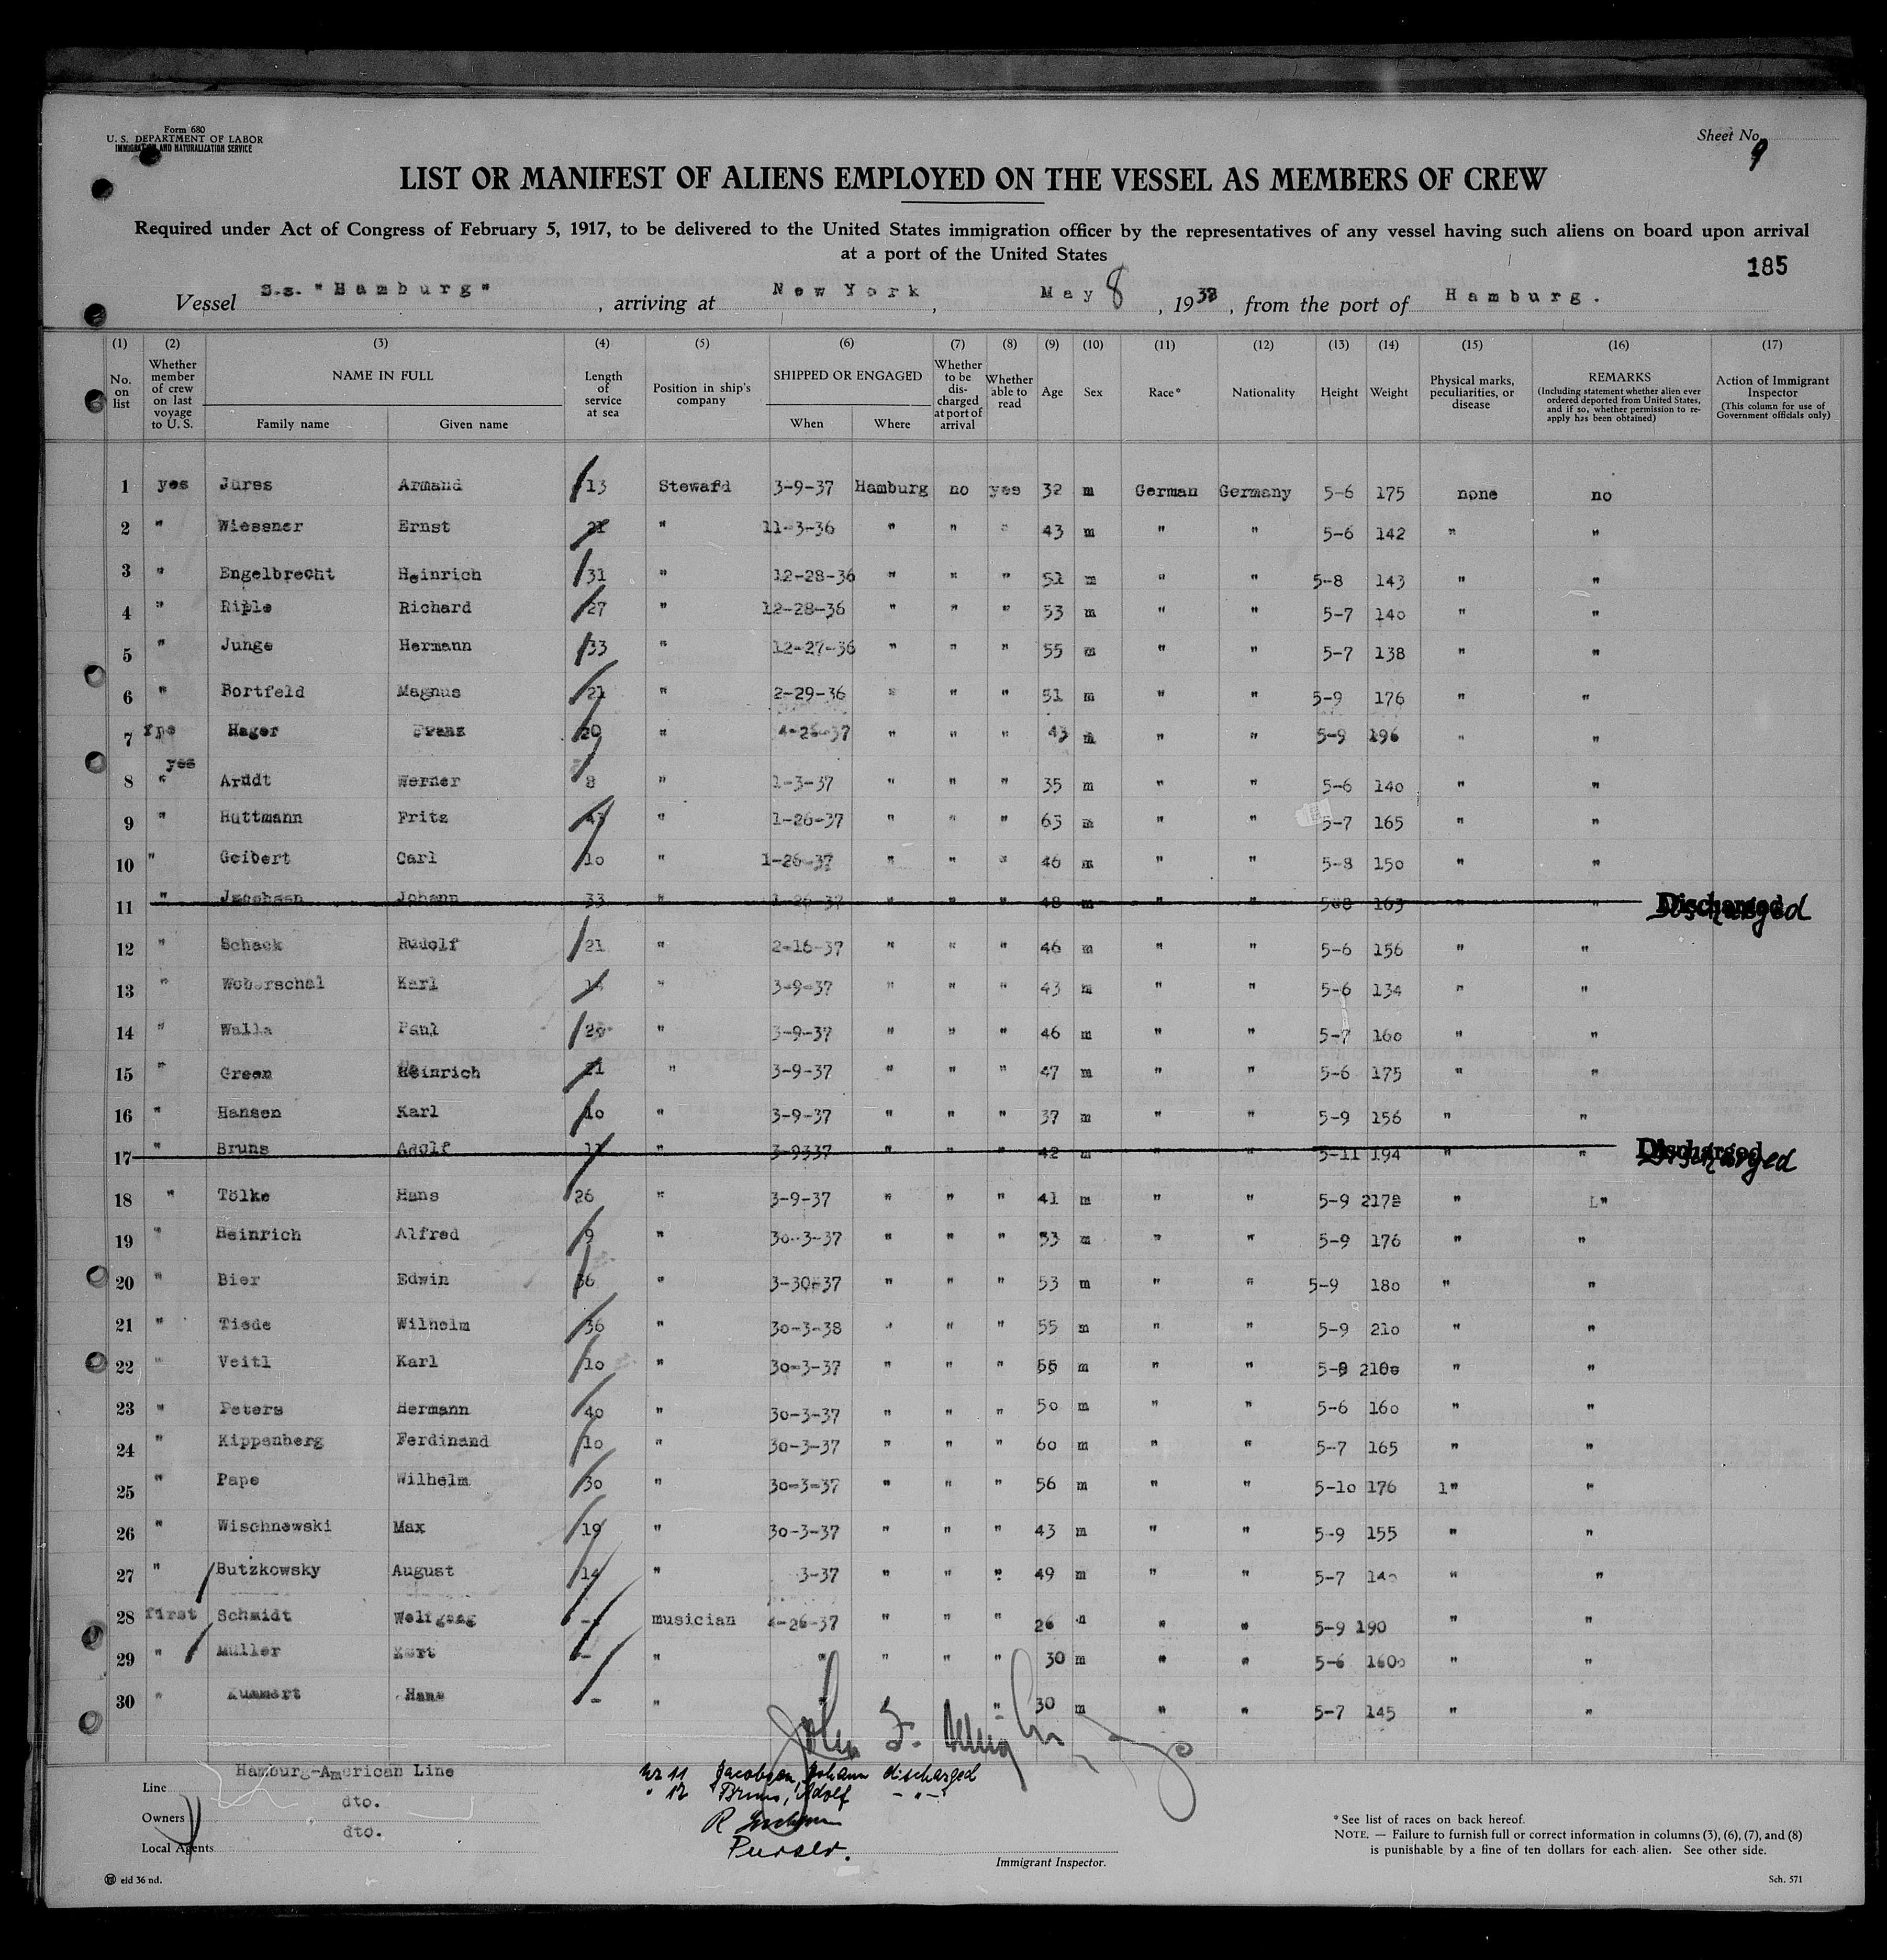 Form 680
U. S. DEPARTMENT OF LABOR
IMMIGRATION AND NATURALIZATION SERVICE
Sheet No. 9
LIST OR MANIFEST OF ALIENS EMPLOYED ON THE VESSEL AS MEMBERS OF CREW
Required under Act of Congress of February 5, 1917, to be delivered to the United States immigration officer by the representatives of any vessel having such aliens on board upon arrival
at a port of the United States
185
Vessel S.s. "Hamburg" , arriving at New York , May 8 , 19 , from the port of Hamburg.
(1) (2) (3) (4) (5) (6) (7) (8) (9) (10) (11) (12) (13) (14) (15) (16) (17)
No. on list Whether member of crew on last voyage to U. S. NAME IN FULL Family name Given name Length of service at sea Position in ship's company SHIPPED OR ENGAGED When Where Whether to be discharged at port of arrival Whether able to read Age Sex Race* Nationality Height Weight Physical marks, peculiarities, or disease REMARKS (Including statement whether alien ever ordered deported from United States, and if so, whether permission to reapply has been obtained) Action of Immigrant Inspector (This column for use of Government officials only)
1 yes Jürss Armand 13 Steward 3-9-37 Hamburg no yes 32 m German Germany 5-6 175 none no
2 " Wiessner Ernst 21 " 11-3-36 " " " 43 m " " 5-6 142 " "
3 " Engelbrecht Heinrich 31 " 12-28-36 " " " 51 m " " 5-8 143 " "
4 " Riple Richard 27 " 12-28-36 " " " 53 m " " 5-7 140 " "
5 " Junge Hermann 33 " 12-27-36 " " " 55 m " " 5-7 138 " "
6 " Bortfeld Magnus 21 " 2-29-36 " " " 51 m " " 5-9 176 " "
7 Hager Franz 20 " 4-26-37 " " " 43 m " " 5-9 196 " "
yes
8 " Arndt Werner 8 " 1-3-37 " " " 35 m " " 5-6 140 " "
9 " Huttmann Fritz " 1-26-37 " " " 63 m " " 5-7 165 " "
10 " Geibert Carl 10 " 1-26-37 " " " 46 m " " 5-8 150 " "
11 " Jacobsen Johann 33 " 1-26-37 " " " 48 m " " 5-8 163 " " Discharged
12 " Schack Rudolf 21 " 2-16-37 " " " 46 m " " 5-6 156 " "
13 " Woberschal Karl " 3-9-37 " " " 43 m " " 5-6 134 " "
14 " Walla Paul 20 " 3-9-37 " " " 46 m " " 5-7 160 " "
15 " Green Heinrich 21 " 3-9-37 " " " 47 m " " 5-6 175 " "
16 " Hansen Karl 10 " 3-9-37 " " " 37 m " " 5-9 156 " "
17 " Bruns Adolf " 3-9337 " " " 42 m " " 5-11 194 " " Discharged
18 " Tölke Hans 26 " 3-9-37 " " " 41 m " " 5-9 2172 " "
19 " Heinrich Alfred 9 " 30-3-37 " " " 53 m " " 5-9 176 " "
20 " Bier Edwin 36 " 3-30-37 " " " 53 m " " 5-9 180 " "
21 " Tiede Wilhelm 36 " 30-3-38 " " " 55 m " " 5-9 210 " "
22 " Veitl Karl 10 " 30-3-37 " " " 55 m " " 5-9 2100 " "
23 " Peters Hermann 40 " 30-3-37 " " " 50 m " " 5-6 160 " "
24 " Kippenberg Ferdinand 10 " 30-3-37 " " " 60 m " " 5-7 165 " "
25 " Pape Wilhelm 30 " 30-3-37 " " " 56 m " " 5-10 176 1" "
26 " Wischnewski Max 19 " 30-3-37 " " " 43 m " " 5-9 155 " "
27 " Butzkowsky August 14 " 3-37 " " " 49 m " " 5-7 140 " "
28 first Schmidt Wolfgang - musician 4-26-37 " " " 26 m " " 5-9 190 " "
29 " Müller Kurt - " " " " " 30 m " " 5-6 160 " "
30 " Kummert Hans - " " 30 m " " 5-7 145 " "
John F.
Line Hamburg-American Line
Owners dto.
Local Agents dto.
Nr 11 Jacobsen, Johann discharged
" 17 Bruns, Adolf - " -
R
Purser.
Immigrant Inspector.
* See list of races on back hereof.
NOTE. — Failure to furnish full or correct information in columns (3), (6), (7), and (8)
is punishable by a fine of ten dollars for each alien. See other side.
eid 36 nd.
Sch. 571